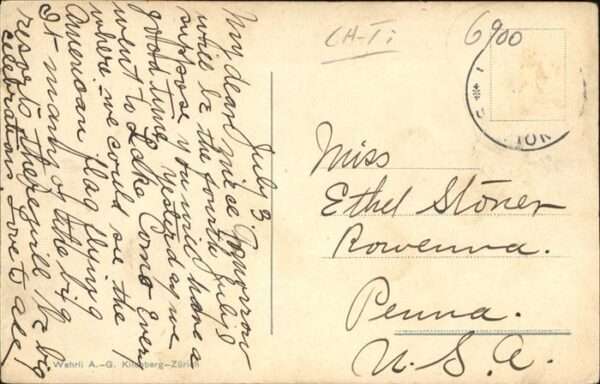 July 3
My dear niece Tomorrow
will be the fourth July I
suppose you will have a
good time, yesterday we
went to Lake Como Every
where we could see the
American flag flying
At many of the big
resorts there will be big
celebrations. Love to all!
CH-Ti
6900
Miss
Ethel Stoner
Rowenna.
Penna.
U.S.A.
Wehrli A.-G. Kilchberg-Zürich